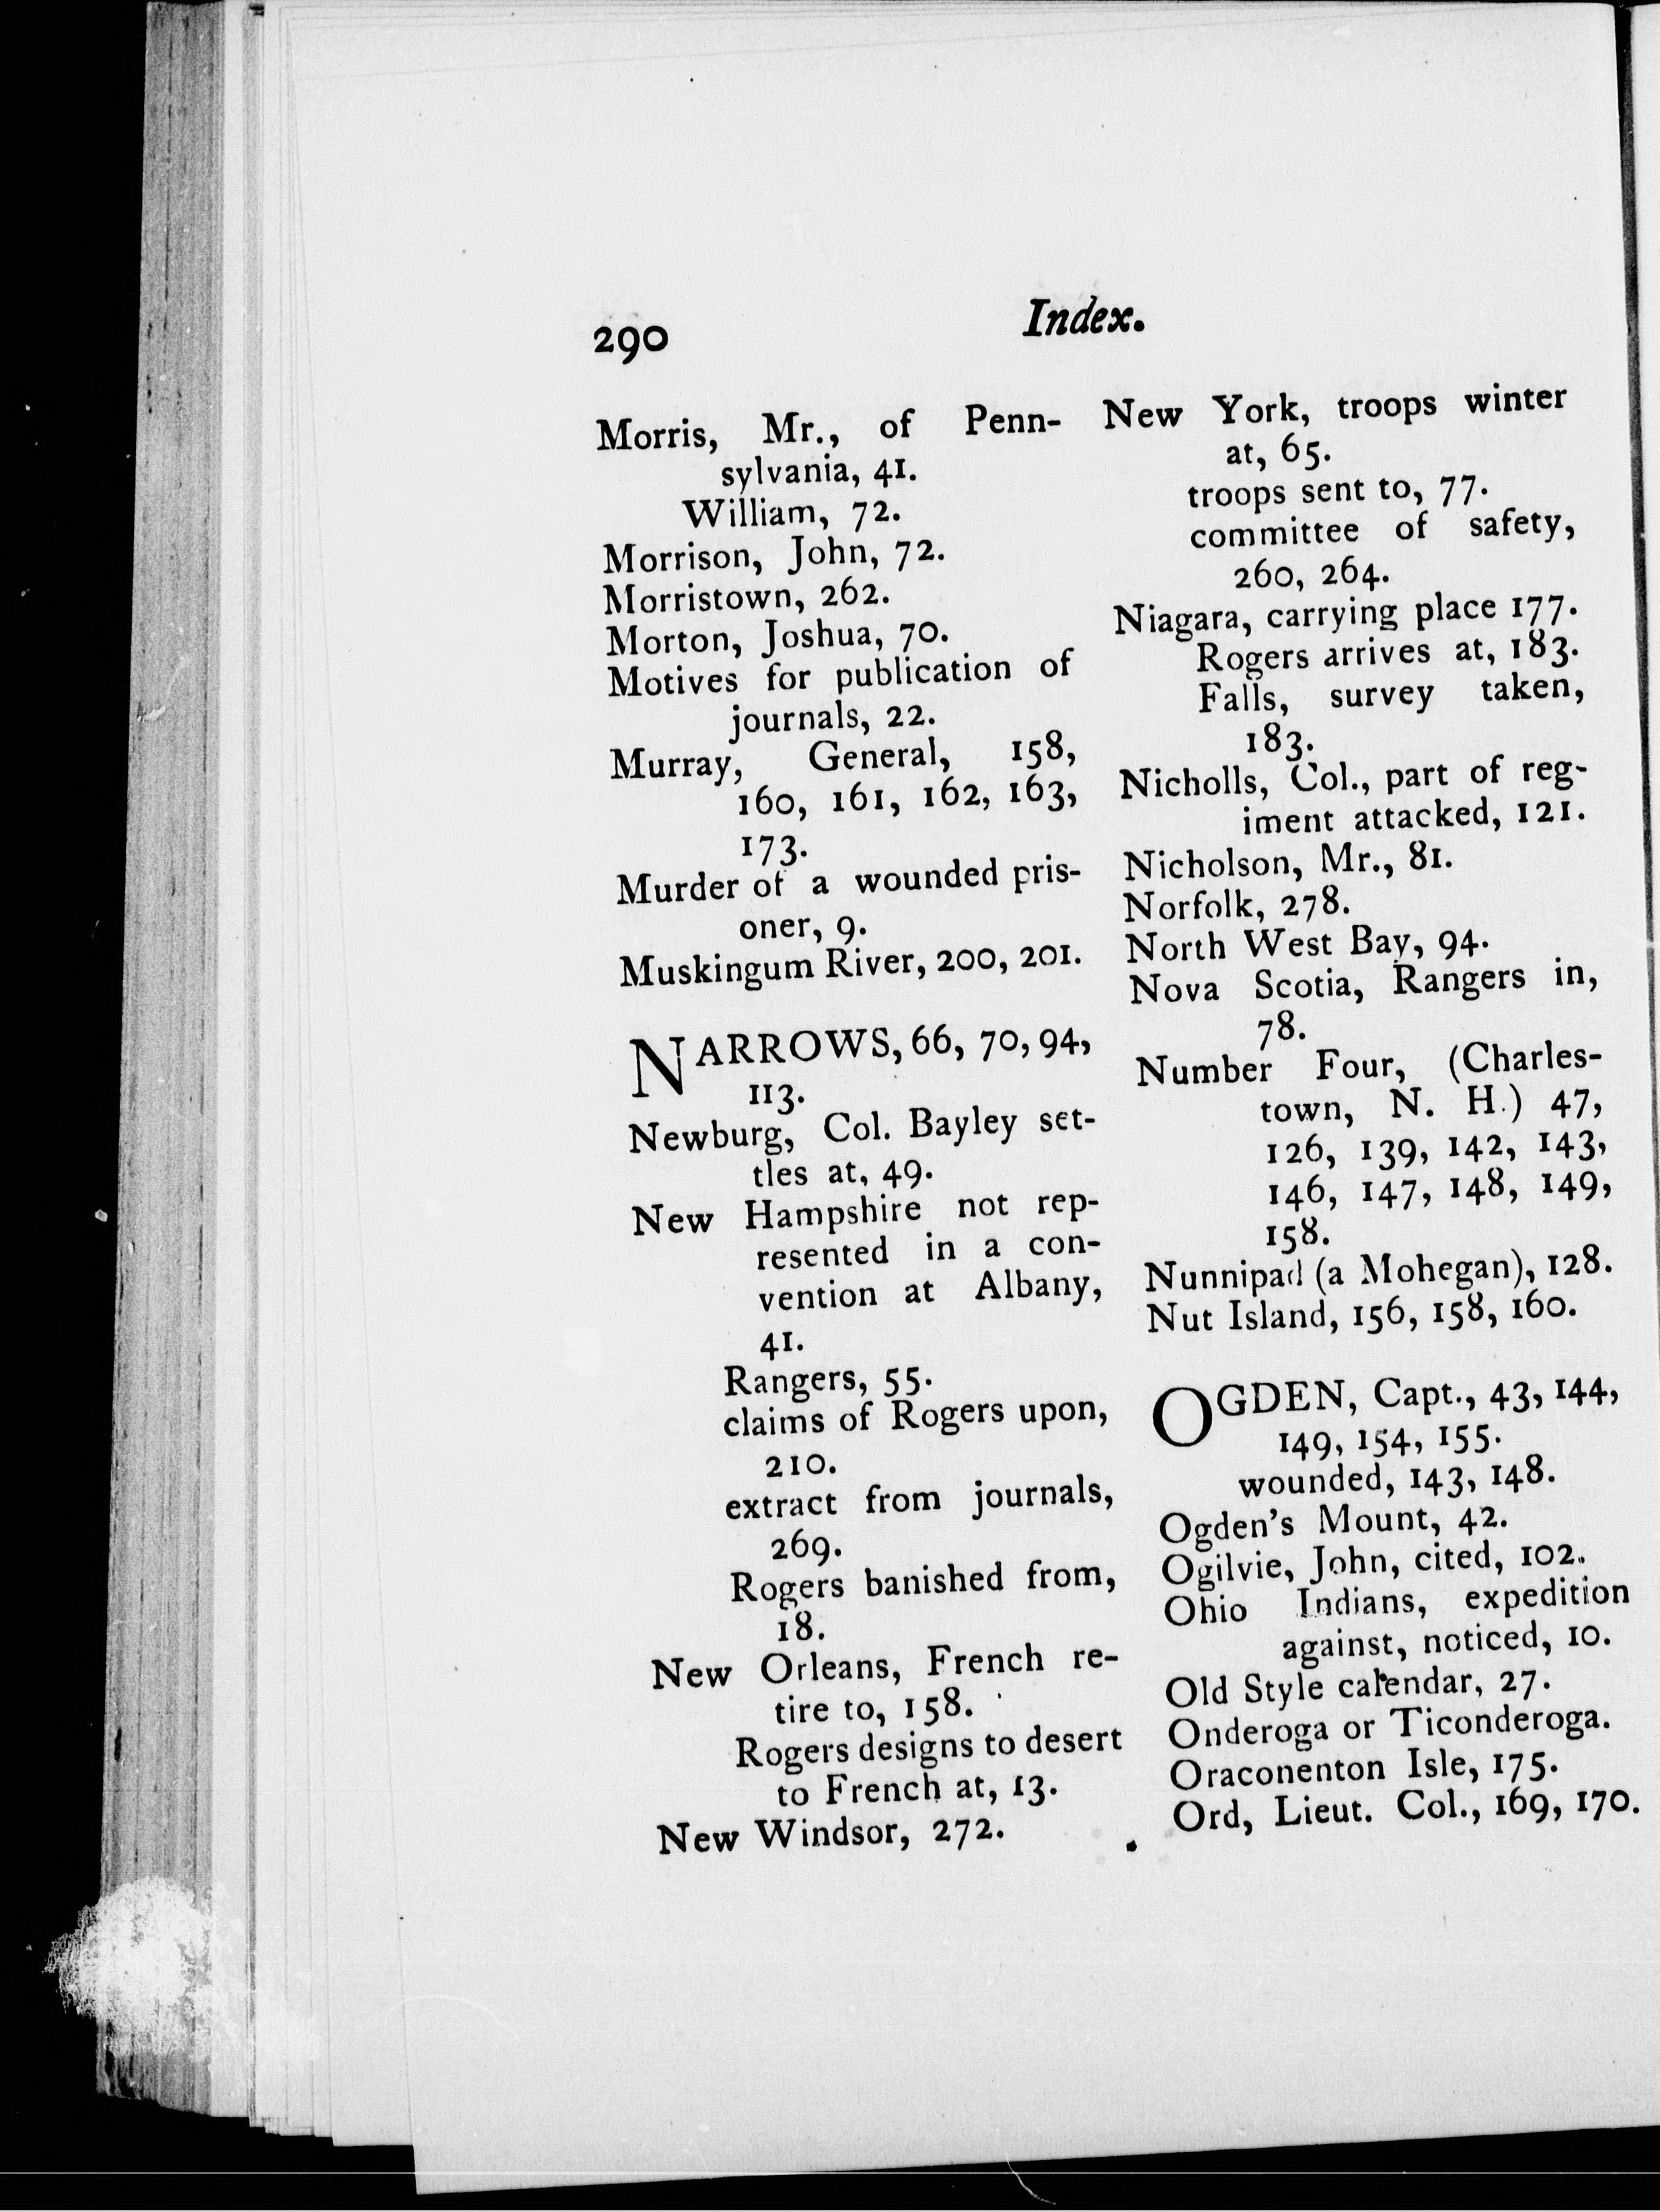 290
Index.
Morris, Mr., of Penn-
sylvania, 41.
William, 72.
Morrison, John, 72.
Morristown, 262.
Morton, Joshua, 70.
Motives for publication of
journals, 22.
Murray, General, 158,
160, 161, 162, 163,
173.
Murder of a wounded pris-
oner, 9.
Muskingum River, 200, 201.
NARROWS, 66, 70, 94,
113.
Newburg, Col. Bayley set-
tles at, 49.
New Hampshire not rep-
resented in a con-
vention at Albany,
41.
Rangers, 55.
claims of Rogers upon,
210.
extract from journals,
269.
Rogers banished from,
18.
New Orleans, French re-
tire to, 158.
Rogers designs to desert
to French at, 13.
New Windsor, 272.
New York, troops winter
at, 65.
troops sent to, 77.
committee of safety,
260, 264.
Niagara, carrying place 177.
Rogers arrives at, 183.
Falls, survey taken,
183.
Nicholls, Col., part of reg-
iment attacked, 121.
Nicholson, Mr., 81.
Norfolk, 278.
North West Bay, 94.
Nova Scotia, Rangers in,
78.
Number Four, (Charles-
town, N. H.) 47,
126, 139, 142, 143,
146, 147, 148, 149,
158.
Nunnipad (a Mohegan), 128.
Nut Island, 156, 158, 160.
OGDEN, Capt., 43, 144,
149, 154, 155.
wounded, 143, 148.
Ogden's Mount, 42.
Ogilvie, John, cited, 102.
Ohio Indians, expedition
against, noticed, 10.
Old Style calendar, 27.
Onderoga or Ticonderoga.
Oraconenton Isle, 175.
Ord, Lieut. Col., 169, 170.